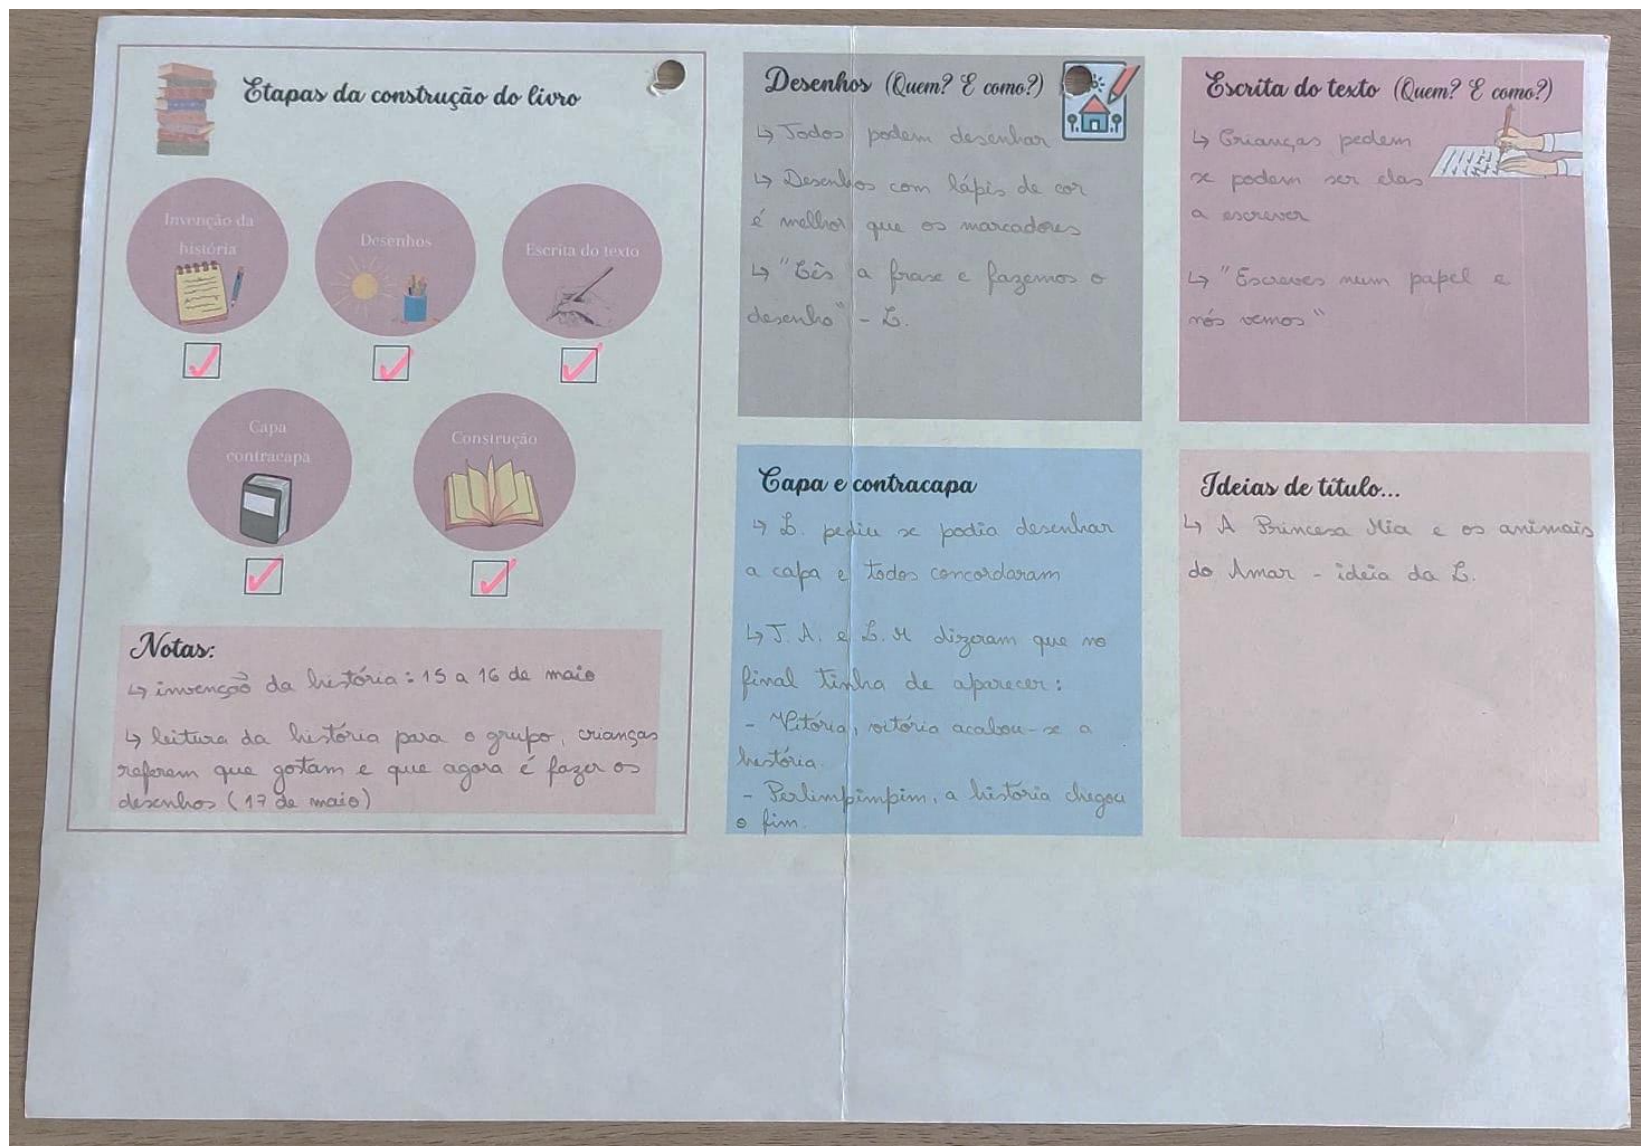 Etapas da construção do livro
Invenção da
história
Desenhos
Escrita do texto
Capa
contracapa
Construção
Notas:
↳ invenção da história: 15 a 16 de maio
↳ leitura da história para o grupo, crianças
referem que gostam e que agora é fazer os
desenhos (17 de maio)
Desenhos (Quem? E como?)
↳ Todos podem desenhar
↳ Desenhos com lápis de cor
é melhor que os marcadores
↳ "Lês a frase e fazemos o
desenho" - L.
Escrita do texto (Quem? E como?)
↳ Crianças pedem
se podem ser elas
a escrever
↳ "Escreves num papel e
nós vemos"
Capa e contracapa
↳ L. pediu se podia desenhar
a capa e todos concordaram
↳ J. A. e L. M dizeram que no
final tinha de aparecer:
- Vitória, vitória acabou-se a
história.
- Perlimpimpim, a história chegou
o fim.
Ideias de título...
↳ A Princesa Mia e os animais
do Amar - ideia da L.